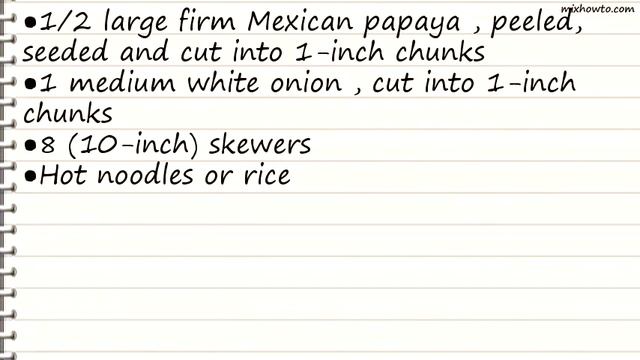 mixhowto.com
●1/2 large firm Mexican papaya , peeled,
seeded and cut into 1-inch chunks
●1 medium white onion , cut into 1-inch
chunks
●8 (10-inch) skewers
●Hot noodles or rice